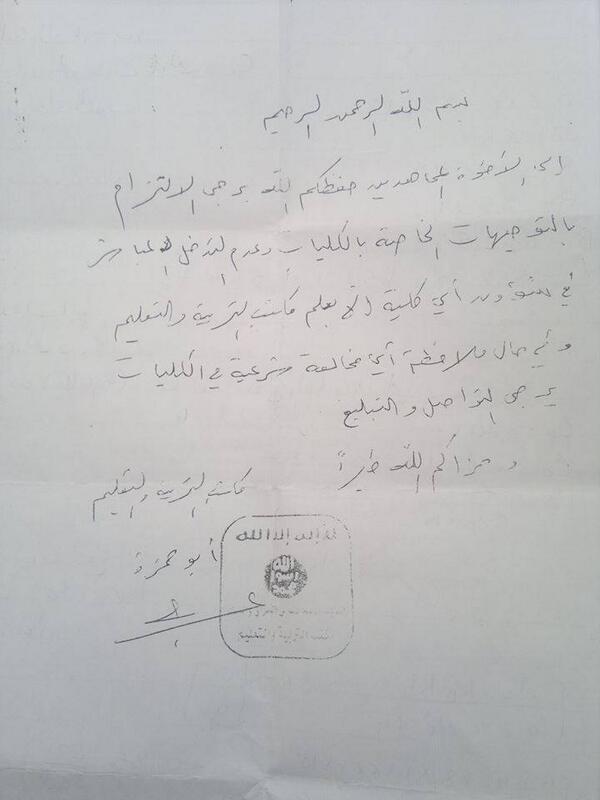 بسم الله الرحمن الرحيم
إلى الأخوة المجاهدين حفظكم الله يرجى الالتزام
بالتوجيهات الخاصة بالكليات وعدم التدخل المباشر
في شؤون أي كلية إلا بعلم مكتب التربية والتعليم
وفي حال ملاحظة أي مخالفة شرعية في الكليات
يرجى التواصل والتبليغ
وجزاكم الله خيراً
مكتب التربية والتعليم
أبو حمزة
لا إله إلا الله
الله رسول محمد